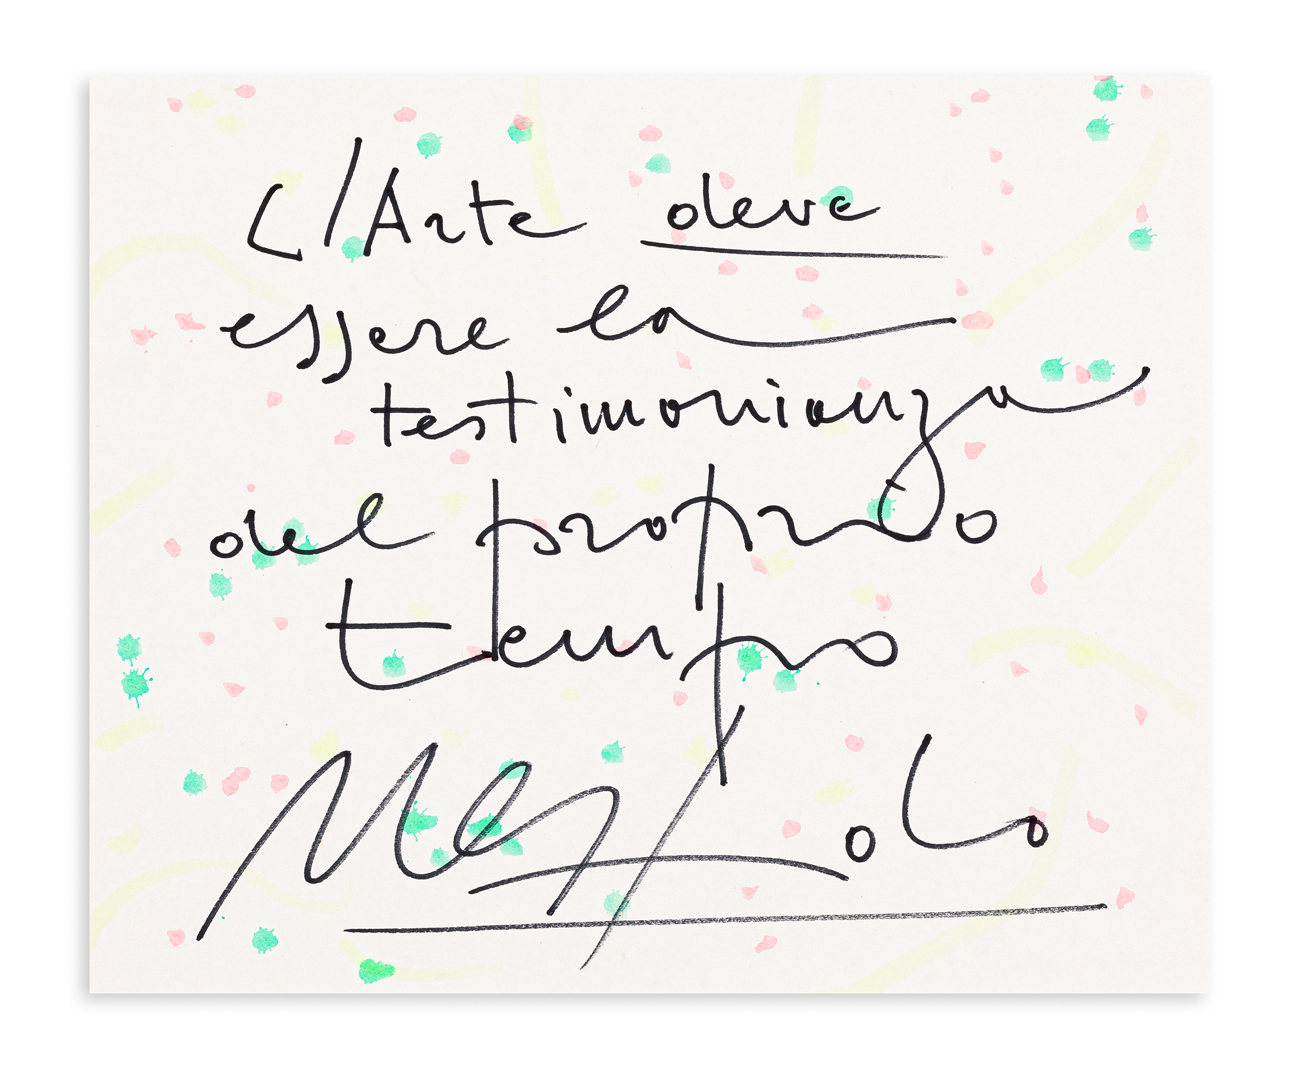 L'Arte deve
essere la
testimonianza
del proprio
tempo